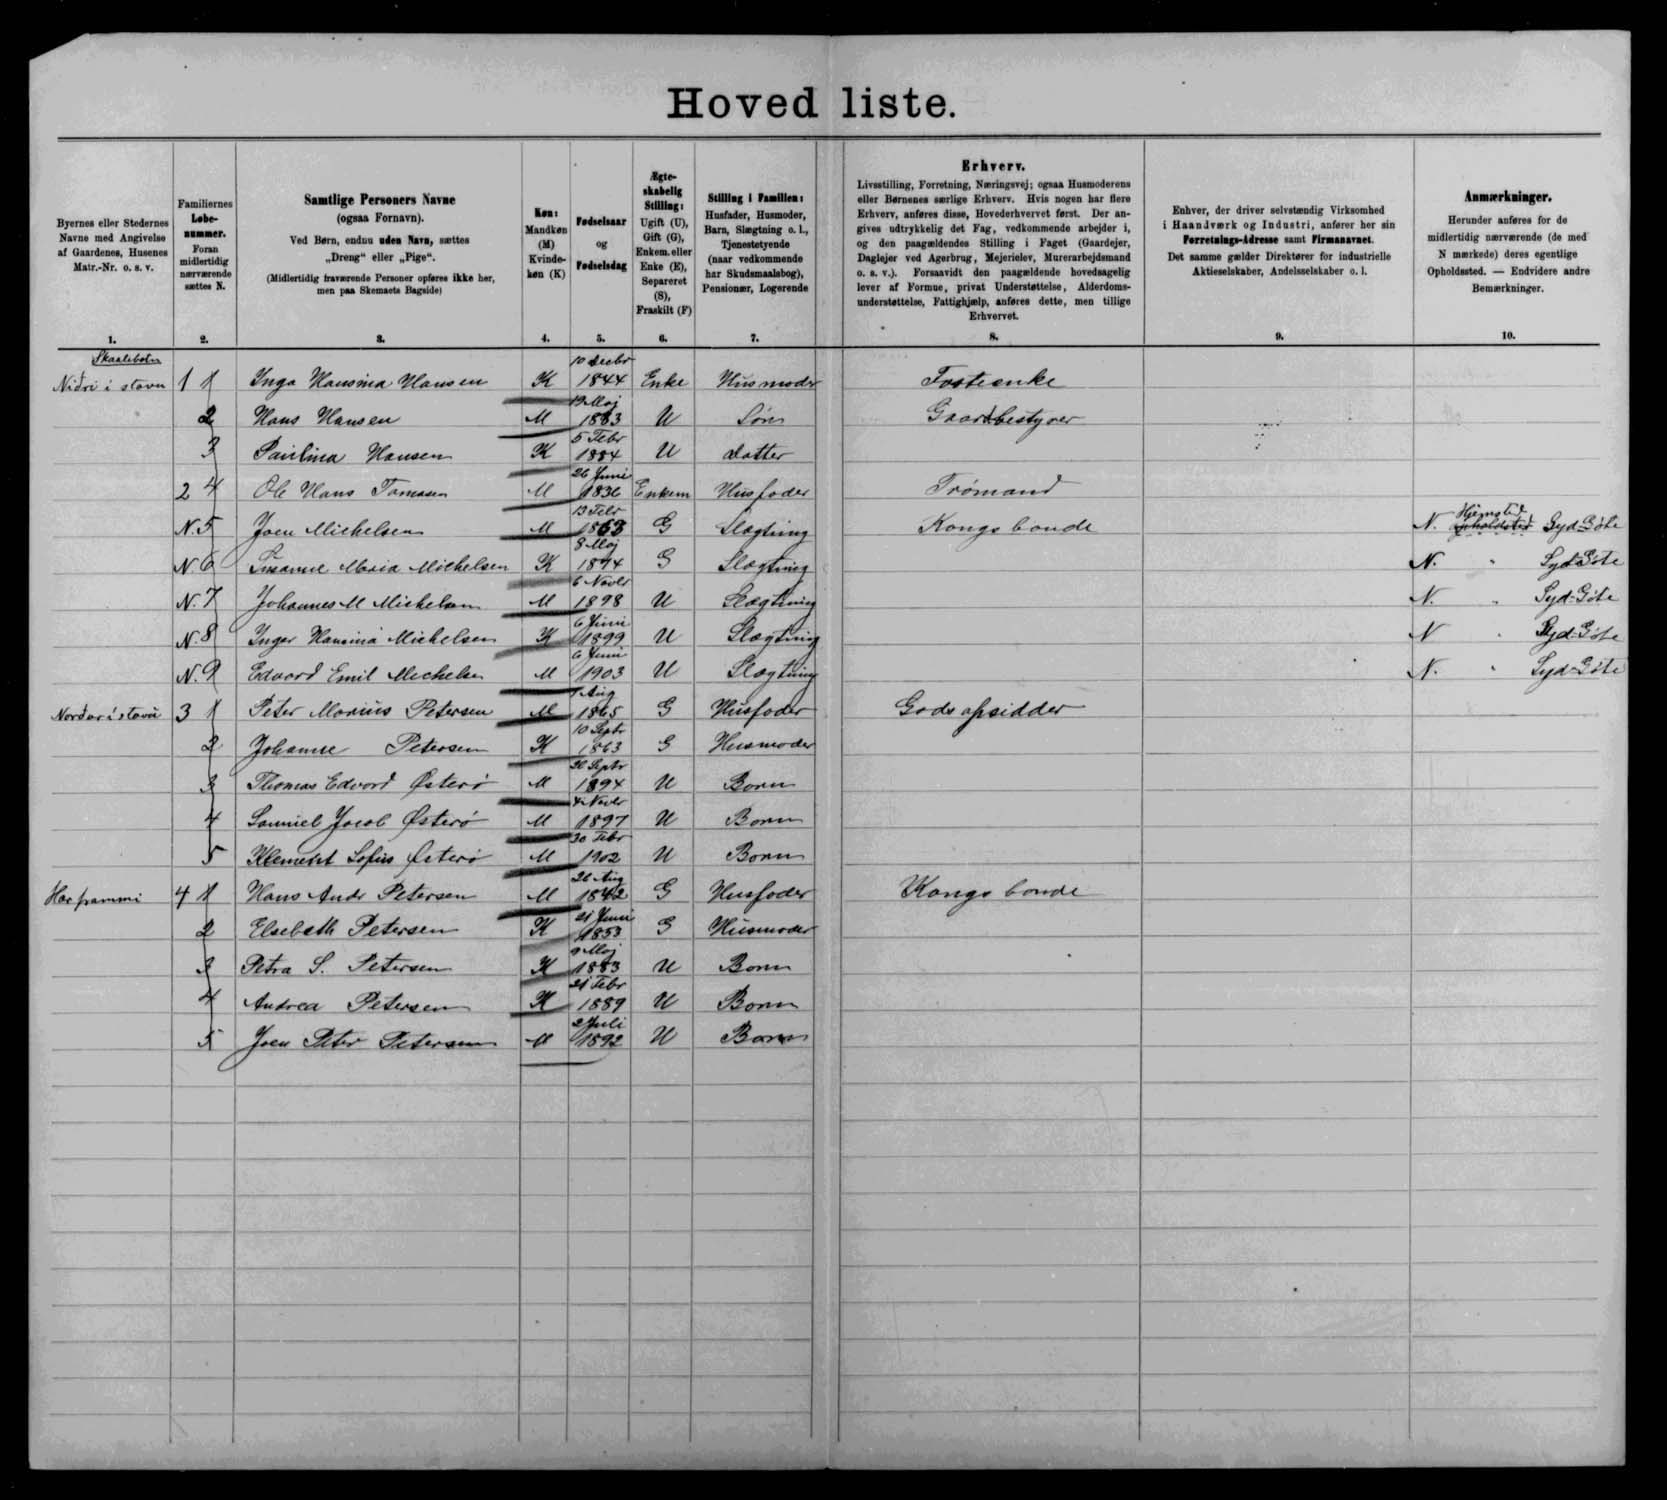 Hovedliste.
Byernes eller Stedernes
Navne med Angivelse
af Gaardenes, Husenes
Matr.-Nr. o. s. v.
1.
Familiernes
Løbe-
nummer.
Foran
midlertidig
nærværende
sættes N.
2.
Samtlige Personers Navne
(ogsaa Fornavn).
Ved Børn, endnu uden Navn, sættes
„Dreng“ eller „Pige“.
(Midlertidig fraværende Personer opføres ikke her,
men paa Skemaets Bagside)
3.
Køn:
Mandkøn
(M)
Kvinde-
køn (K)
4.
Fødselsaar
og
Fødselsdag
5.
Ægte-
skabelig
Stilling:
Ugift (U),
Gift (G),
Enkem. eller
Enke (E),
Separeret
(S),
Fraskilt (F)
6.
Stilling i Familien:
Husfader, Husmoder,
Barn, Slægtning o. l.,
Tjenestetyende
(naar vedkommende
har Skudsmaalsbog),
Pensionær, Logerende
7.
Erhverv.
Livsstilling, Forretning, Næringsvej; ogsaa Husmoderens
eller Børnenes særlige Erhverv. Hvis nogen har flere
Erhverv, anføres disse, Hovederhvervet først. Der an-
gives udtrykkelig det Fag, vedkommende arbejder i,
og den paagældendes Stilling i Faget (Gaardejer,
Daglejer ved Agerbrug, Mejerielev, Murerarbejdsmand
o. s. v.). Forsaavidt den paagældende hovedsagelig
lever af Formue, privat Understøttelse, Alderdoms-
understøttelse, Fattighjælp, anføres dette, men tillige
Erhvervet.
8.
Enhver, der driver selvstændig Virksomhed
i Haandværk og Industri, anfører her sin
Forretnings-Adresse samt Firmanavnet.
Det samme gælder Direktører for industrielle
Aktieselskaber, Andelsselskaber o. l.
9.
Anmærkninger.
Herunder anføres for de
midlertidig nærværende (de med
N mærkede) deres egentlige
Opholdssted. — Endvidere andre
Bemærkninger.
10.
Skaalebotn
Niðri i stovu 1 1 Inga Hansina Hansen K 10 Decbr 1844 Enke Husmoder Fæsteenke
2 Hans Hansen M 19 Maj 1883 U Søn Gaardbestyrer
3 Paulina Hansen K 5 Febr 1884 U datter
2 4 Ole Hans Tomasen M 26 Juni 1836 Enkem Husfader Trømand
N. 5 Joen Michelsen M 13 Febr 1863 G Slægtning Kongsbonde N. Hjemsted Syd-Göte
N 6 Susanne Maria Michelsen K 8 Maj 1874 G Slægtning N. " Syd-Göte
N. 7 Johannes M Michelsen M 6 Novbr 1898 U Slægtning N. " Syd-Göte
N. 8 Inger Hansina Michelsen K 6 Juni 1899 U Slægtning N " Syd-Göte
N. 9 Edvard Emil Michelsen M 6 Juni 1903 U Slægtning N. " Syd-Göte
Norður i stovu 3 1 Peter Marius Petersen M 1 Aug 1865 G Husfader Godsafsidder
2 Johanne Petersen K 10 Septr 1863 G Husmoder
3 Thomas Edvard Østerø M 1894 U Barn
4 Samuel Jacob Østerø M 4 Novbr 1897 U Barn
5 Klement Sofus Østerø M 1902 U Barn
Har frammi 4 1 Hans Andr Petersen M 26 Aug 1842 G Husfader Kongsbonde
2 Elsebeth Petersen K 21 Juni 1853 G Husmoder
3 Petra S. Petersen K 9 Maj 1883 U Barn
4 Andrea Petersen K 21 Febr 1889 U Barn
5 Joen Peter Petersen M 2 Juli 1892 U Barn